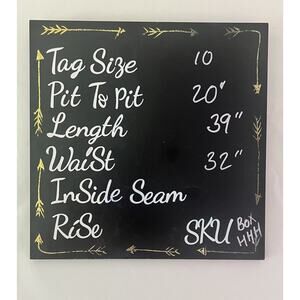 Tag Size 10
Pit To Pit 20"
Length 39"
WaiSt 32"
InSide Seam
RiSe SKU BOX
HHH